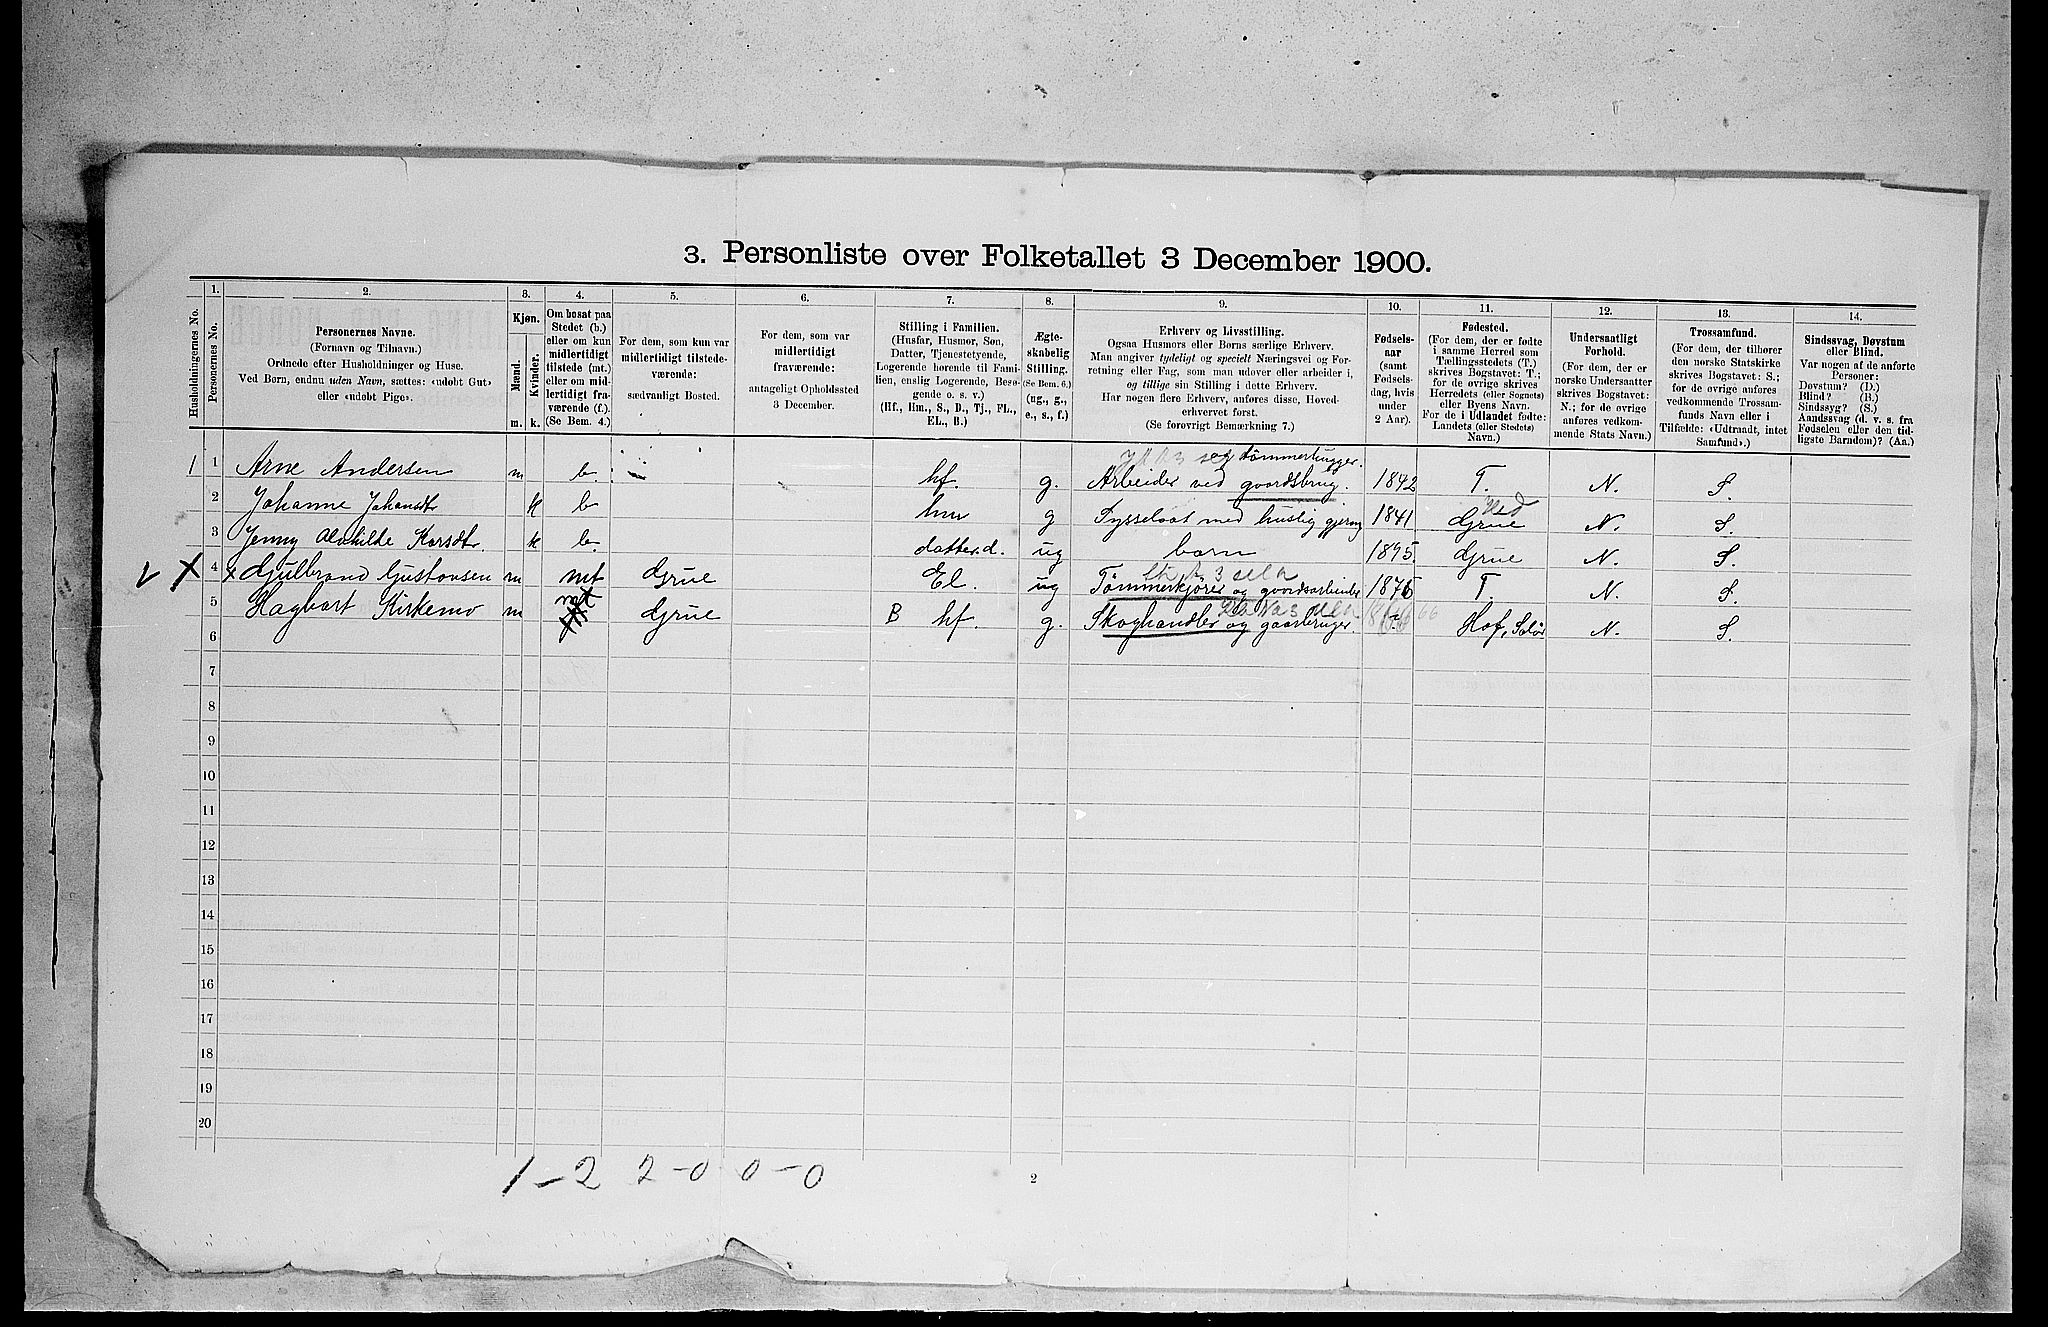 3. Personliste over Folketallet 3 December 1900.
1. 2. 3. 4. 5. 6. 7. 8. 9. 10. 11. 12. 13. 14.
Husholdningernes No.
Personernes No.
Personernes Navne.
(Fornavn og Tilnavn.)
Ordnede efter Husholdninger og Huse.
Ved Børn, endnu uden Navn, sættes: «udøbt Gut»
eller «udøbt Pige».
Kjøn.
Mænd.
Kvinder.
m. k.
Om bosat paa
Stedet (b.)
eller om kun
midlertidigt
tilstede (mt.)
eller om mid-
lertidigt fra-
værende (f.).
(Se Bem. 4.)
For dem, som kun var
midlertidigt tilstede-
værende:
sædvanligt Bosted.
For dem, som var
midlertidigt
fraværende:
antageligt Opholdssted
3 December.
Stilling i Familien.
(Husfar, Husmor, Søn,
Datter, Tjenestetyende,
Logerende hørende til Fami-
lien, enslig Logerende, Besø-
gende o. s. v.)
(Hf., Hm., S., D., Tj., FL.,
EL., B.)
Ægte-
skabelig
Stilling.
(Se Bem. 6.)
(ug., g.,
e., s., f.)
Erhverv og Livsstilling.
Ogsaa Husmors eller Børns særlige Erhverv.
Man angiver tydeligt og specielt Næringsvei og For-
retning eller Fag, som man udøver eller arbeider i,
og tillige sin Stilling i dette Erhverv.
Har nogen flere Erhverv, anføres disse, Hoved-
erhvervet først.
(Se forøvrigt Bemærkning 7.)
Fødsels-
aar
(samt
Fødsels-
dag, hvis
under
2 Aar).
Fødested.
(For dem, der er fødte
i samme Herred som
Tællingsstedets (T.)
skrives Bogstavet: T.;
for de øvrige skrives
Herredets (eller Sognets)
eller Byens Navn.
For de i Udlandet fødte:
Landets (eller Stedets)
Navn.)
Undersaatligt
Forhold.
(For dem, der er
norske Undersaatter
skrives Bogstavet:
N.; for de øvrige
anføres vedkom-
mende Stats Navn.)
Trossamfund.
(For dem, der tilhører
den norske Statskirke
skrives Bogstavet: S.;
for de øvrige anføres
vedkommende Trossam-
funds Navn eller i
Tilfælde: «Udtraadt, intet
Samfund».)
Sindssvag, Døvstum
eller Blind.
Var nogen af de anførte
Personer:
Døvstum? (D.)
Blind? (B.)
Sindssyg? (S.)
Aandssvag (d. v. s. fra
Fødselen eller den tid-
ligste Barndom)? (Aa.)
og tømmerhugger.
1 1 Arne Andersen m b. hf. g. Arbeider ved gaardsbrug. 1842 T. N. S.
2 Johanne Johansdtr k b hm g Sysselsat med huslig gjerning 1841 Grue N. S.
3 Jenny Karsdtr. k b. datter. d. ug barn 1895. Grue N. S.
X 4 x Gulbrand Gustavsen m mt Grue El. ug Tømmerkjører og gaardsarbeider 1876 T. N. S.
5 Hagbart Kirkemo m mt Grue B hf. g. Skoghandler og gaardbruger. Hof, Solør N. S.
6
7
8
9
10
11
12
13
14
15
16
17
18
19
20
1-2 2-0 0-0
2